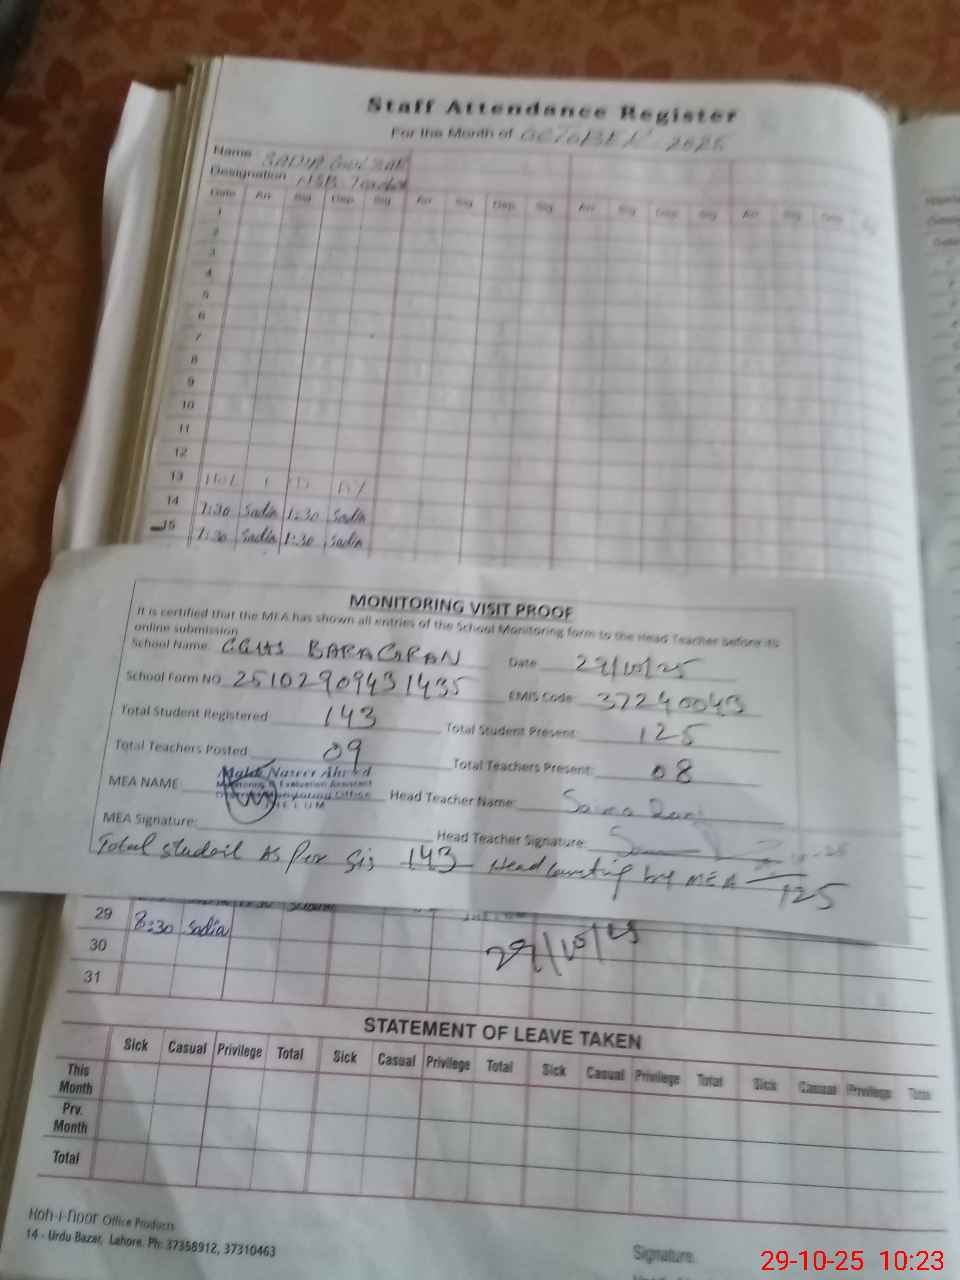 Staff Attendance Register
For the Month of OCTOBER 2025
Name SADIA
Designation NSB Teacher
Date Arr Sig Dep Sig Arr Sig Dep Sig Arr Sig Dep Sig Arr Sig Dep
1
2
3
4
5
6
7
8
9
10
11
12
13 HOL I D AY
14 7:30 Sadia 1:30 Sadia
15 7:30 Sadia 1:30 Sadia
MONITORING VISIT PROOF
It is certified that the MEA has shown all entries of the School Monitoring form to the Head Teacher before its
online submission
School Name GGHS BARAGRAN Date 29/10/25
School Form NO 25102909431435 EMIS Code: 37240043
Total Student Registered 143 Total Student Present: 125
Total Teachers Posted: 09 Total Teachers Present: 08
Malik Naseer Ahmed
Monitoring & Evaluation Assistant
District Monitoring Office
JHELUM
MEA NAME Head Teacher Name: Saima
MEA Signature: Head Teacher Signature:
Total studail As per Sis 143 Head Counting by MEA 125
29 8:30 Sadia
29/10/25
30
31
STATEMENT OF LEAVE TAKEN
Sick Casual Privilege Total Sick Casual Privilege Total Sick Casual Privilege Total Sick Casual Privilege Total
This Month
Prv. Month
Total
Koh-i-noor Office Products
14 - Urdu Bazar, Lahore. Ph: 37358912, 37310463
Signature.
29-10-25 10:23